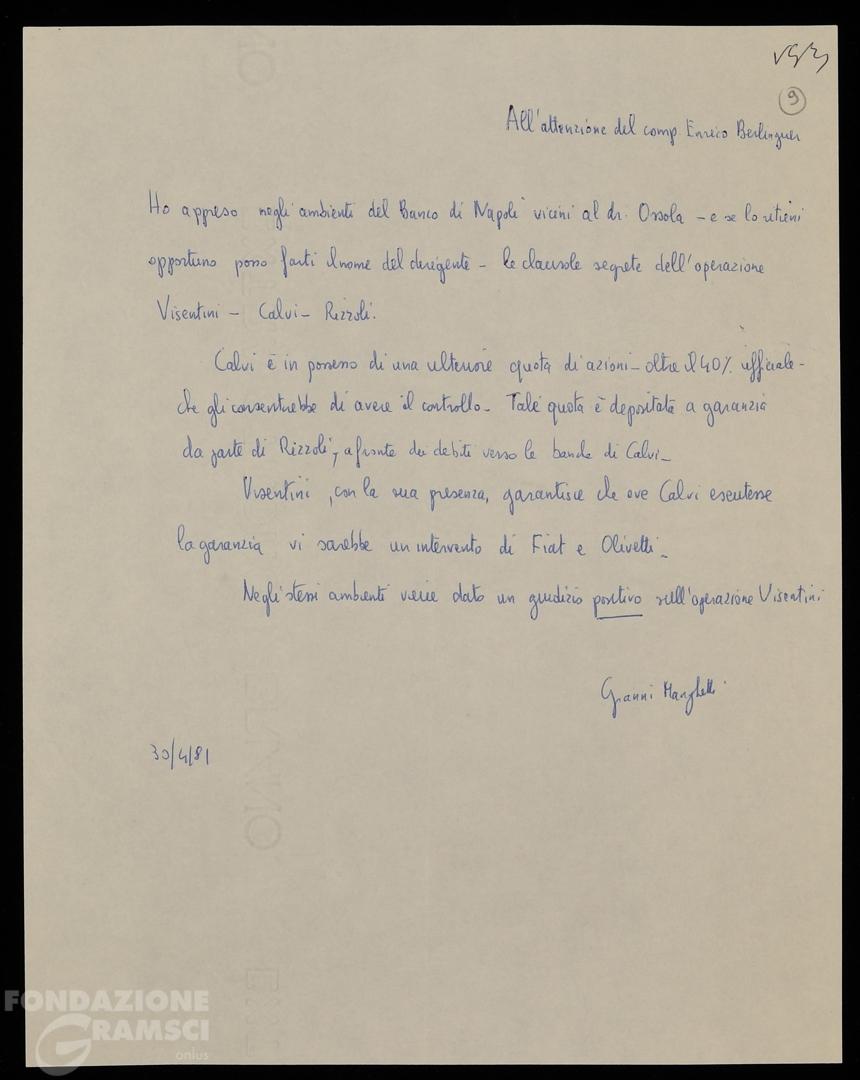 9
All'attenzione del comp. Enrico Berlinguer
Ho appreso negli ambienti del Banco di Napoli vicini al dr. Ossola – e se lo ritieni
opportuno posso farti il nome del dirigente – le clausole segrete dell'operazione
Visentini – Calvi – Rizzoli.
Calvi è in possesso di una ulteriore quota di azioni – oltre il 40% ufficiale –
che gli consentirebbe di avere il controllo – Tale quota è depositata a garanzia
da parte di Rizzoli, a fronte dei debiti verso le banche di Calvi –
Visentini, con la sua presenza, garantisce che ove Calvi escutesse
la garanzia vi sarebbe un intervento di Fiat e Olivetti –
Negli stessi ambienti viene dato un giudizio positivo sull'operazione Visentini
Gianni Manghetti
30/4/81
FONDAZIONE
GRAMSCI
onlus